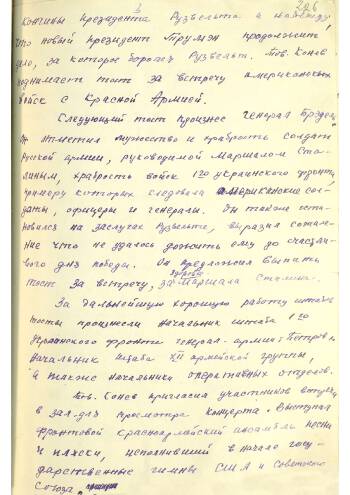 3
206
кончины президента Рузвельта и надежду,
что новый президент Трумэн продолжит
дело, за которое боролся Рузвельт. Тов. Конев
поднимает тост за встречу американских
войск с Красной Армией.
Следующий тост произнес генерал Брэдли
Он отметил мужество и храбрость солдат
Русской армии, руководимой Маршалом Ста
линым, храбрость войск 1го украинского фронта
примеру которых следовала американские сол
даты, офицеры и генералы. Он также оста
новился на заслугах Рузвельта, выразил сожале
ние что не удалось дожить ему до счастли
вого дня победы. Он предложил выпить
тост за встречу, за здоровье Маршала Сталина.
За дальнейшую хорошую работу штабов
тосты произнесли начальник штаба 1го
Украинского фронта генерал-армии Петров и
начальник штаба XII армейской группы,
а также начальники оперативных отделов.
Тов. Конев пригласил участников встречи
в зал для просмотра концерта. Выступал
фронтовой красноармейский ансамбль песни
и пляски, исполнивший в начале госу
дарственные гимны США и Советского
Союза.